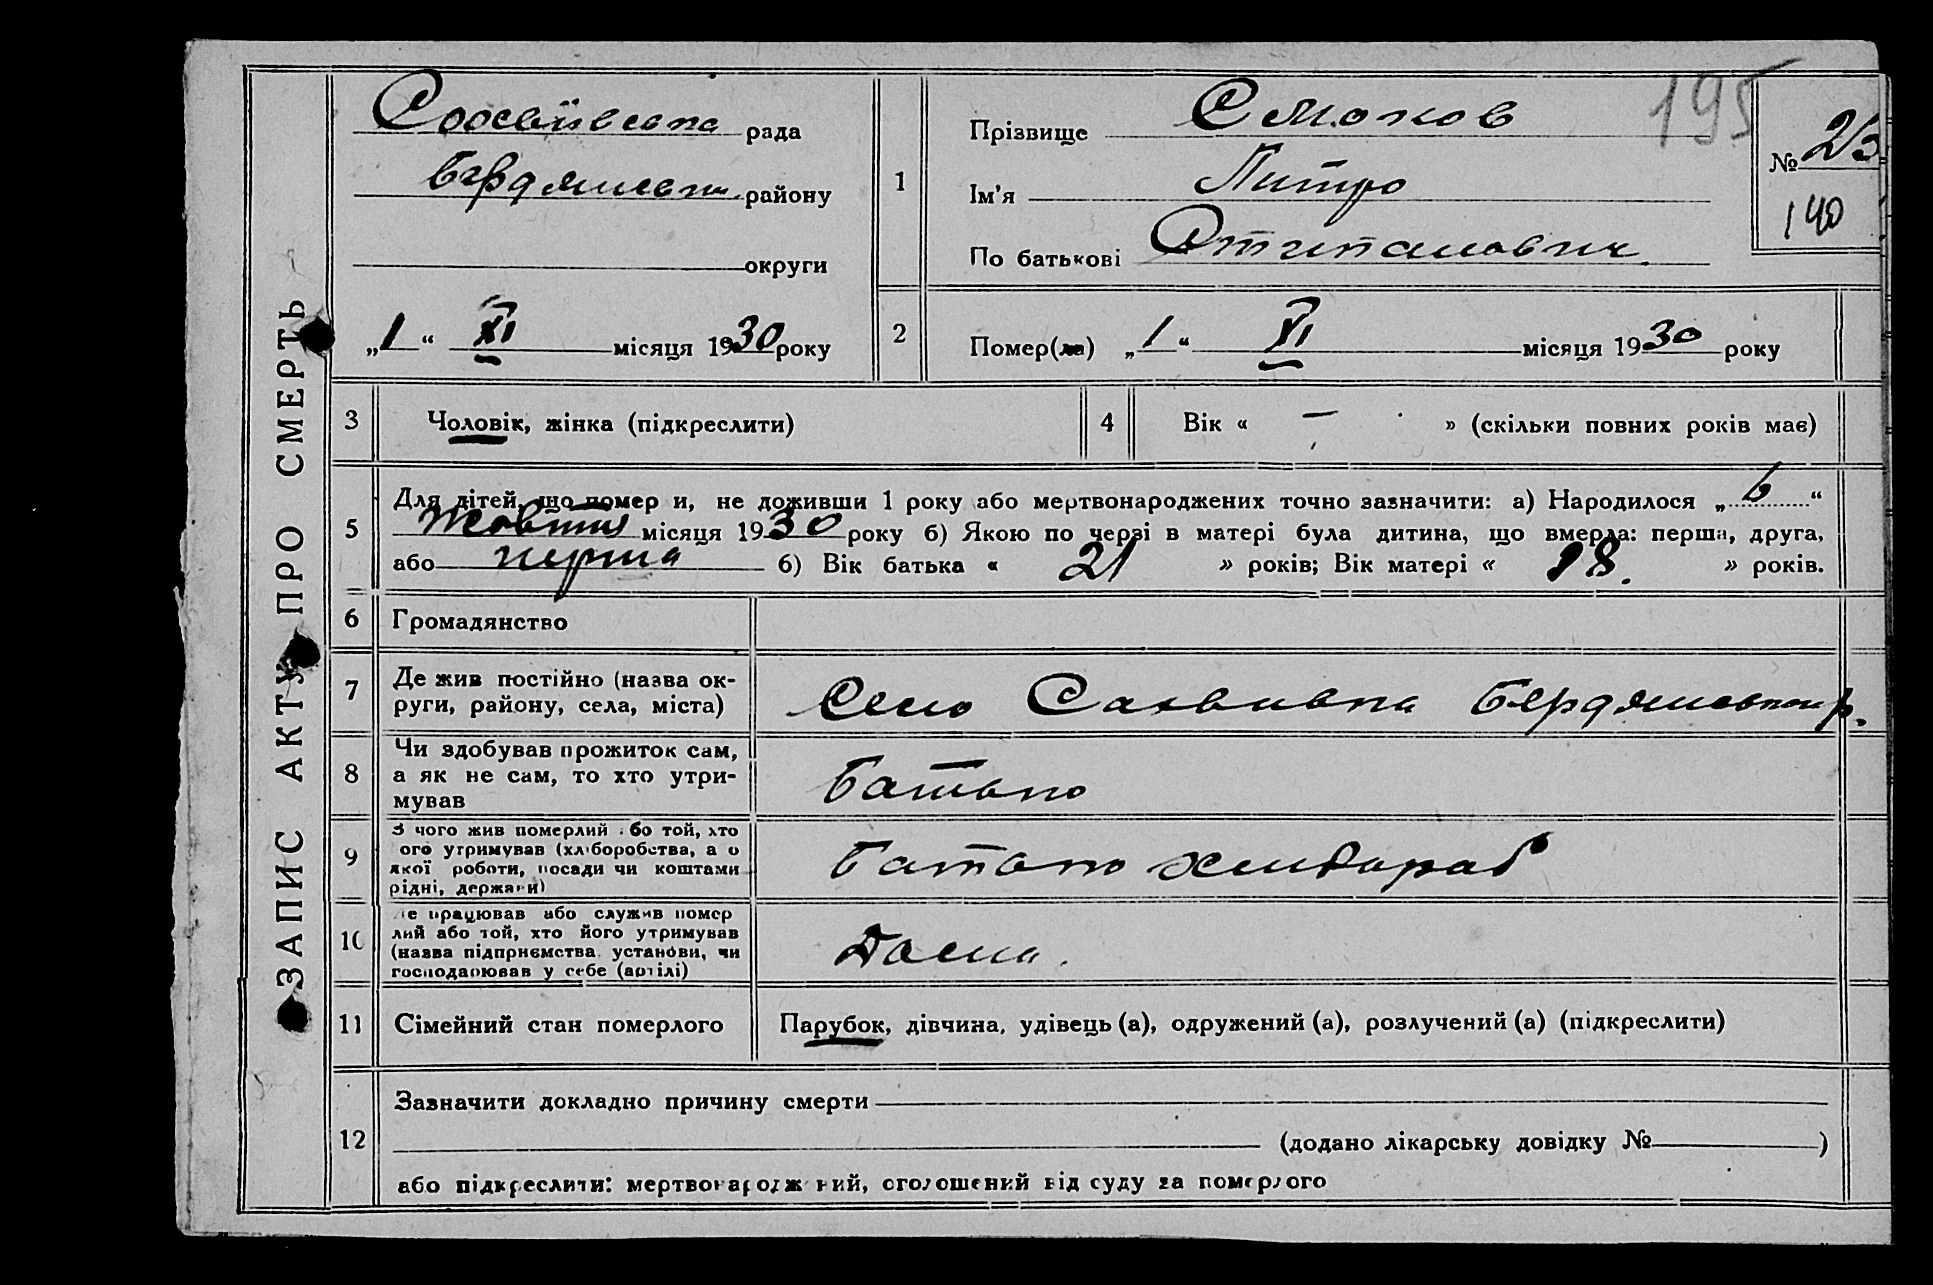 ЗАПИС АКТУ ПРО СМЕРТЬ
рада
району
округи
„1“ XI місяця 1930 року
195
№ 23
140
1
Прізвище Смоков
Ім'я Питро
По батькові Стипанович
2
Помер(ла) „1“ XI місяця 1930 року
3
Чоловік, жінка (підкреслити)
4
Вік « — » (скільки повних років має)
5
Для дітей, що помер и, не доживши 1 року або мертвонароджених точно зазначити: а) Народилося „6“
Жовтня місяця 1930 року б) Якою по черзі в матері була дитина, що вмерла: перша, друга,
або перша б) Вік батька « 21 » років; Вік матері « 18. » років.
6
Громадянство
7
Де жив постійно (назва ок-
руги, району, села, міста)
Село Бердянськ р.
8
Чи здобував прожиток сам,
а як не сам, то хто утри-
мував
Батько
9
З чого жив померлий або той, хто
ого утримував (хліборобства, а о
якої роботи, посади чи коштами
рідні, держави)
Батько хлибароб
10
е працював або служив помер
лий або той, хто його утримував
(назва підприємства, установи, чи
господарював у себе (артілі)
Дома.
11
Сімейний стан померлого
Парубок, дівчина, удівець (а), одружений (а), розлучений (а) (підкреслити)
12
Зазначити докладно причину смерти
(додано лікарську довідку № )
або підкреслити: мертвонароджений, оголошений від суду за померлого